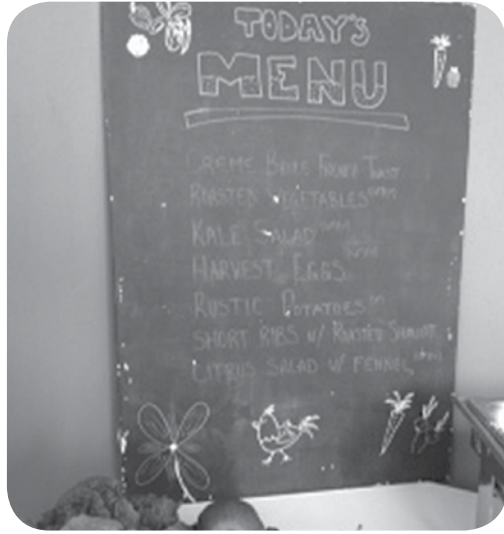 TODAY'S
MENU
CRÈME BRULE FRENCH TOAST
ROASTED VEGETABLES
KALE SALAD
HARVEST EGGS
RUSTIC POTATOES
SHORT RIBS W/ ROASTED
CITRUS SALAD W/ FENNEL